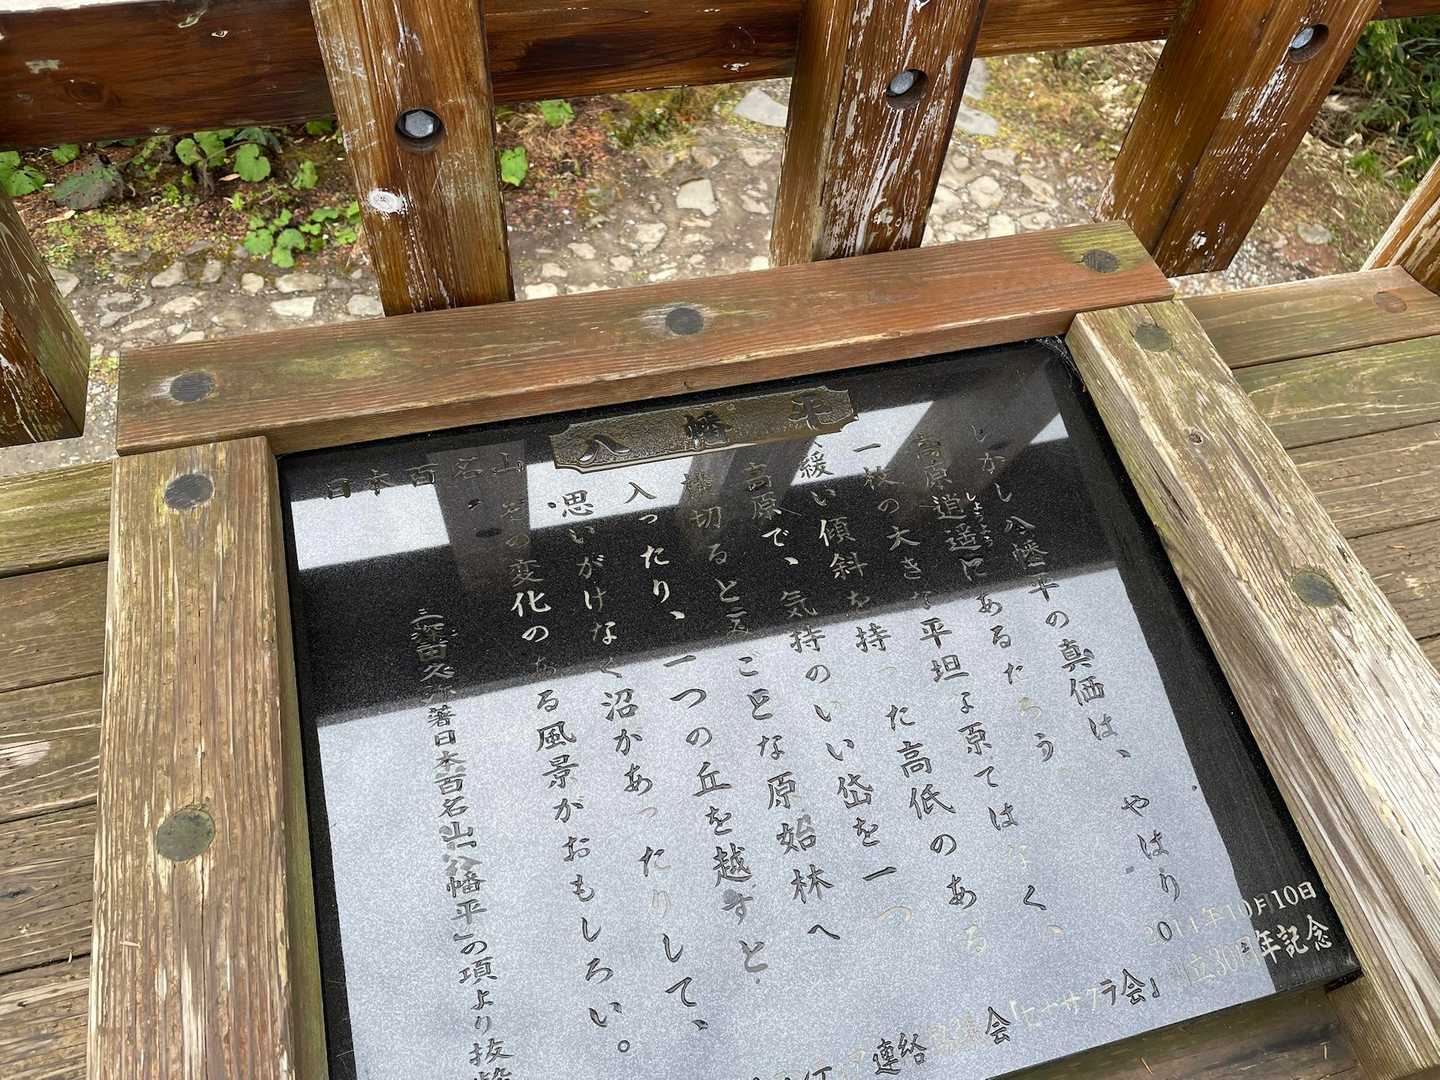 日本百名山
八幡平
しかし八幡平の真価は、やはり
高原逍遥にあるだろう。
しょうよう
一枚の大きな平坦な原ではなく、
緩い傾斜を持った高低のある
高原で、気持のいい岱を一つ
横切ると、みごとな原始林へ
入ったり、一つの丘を越すと
思いがけなく沼があったりして、
その変化のある風景がおもしろい。
深田久弥著日本百名山「八幡平」の項より抜粋
2011年10月10日
立30周年記念
連絡協議会「ヒヤサクラ会」